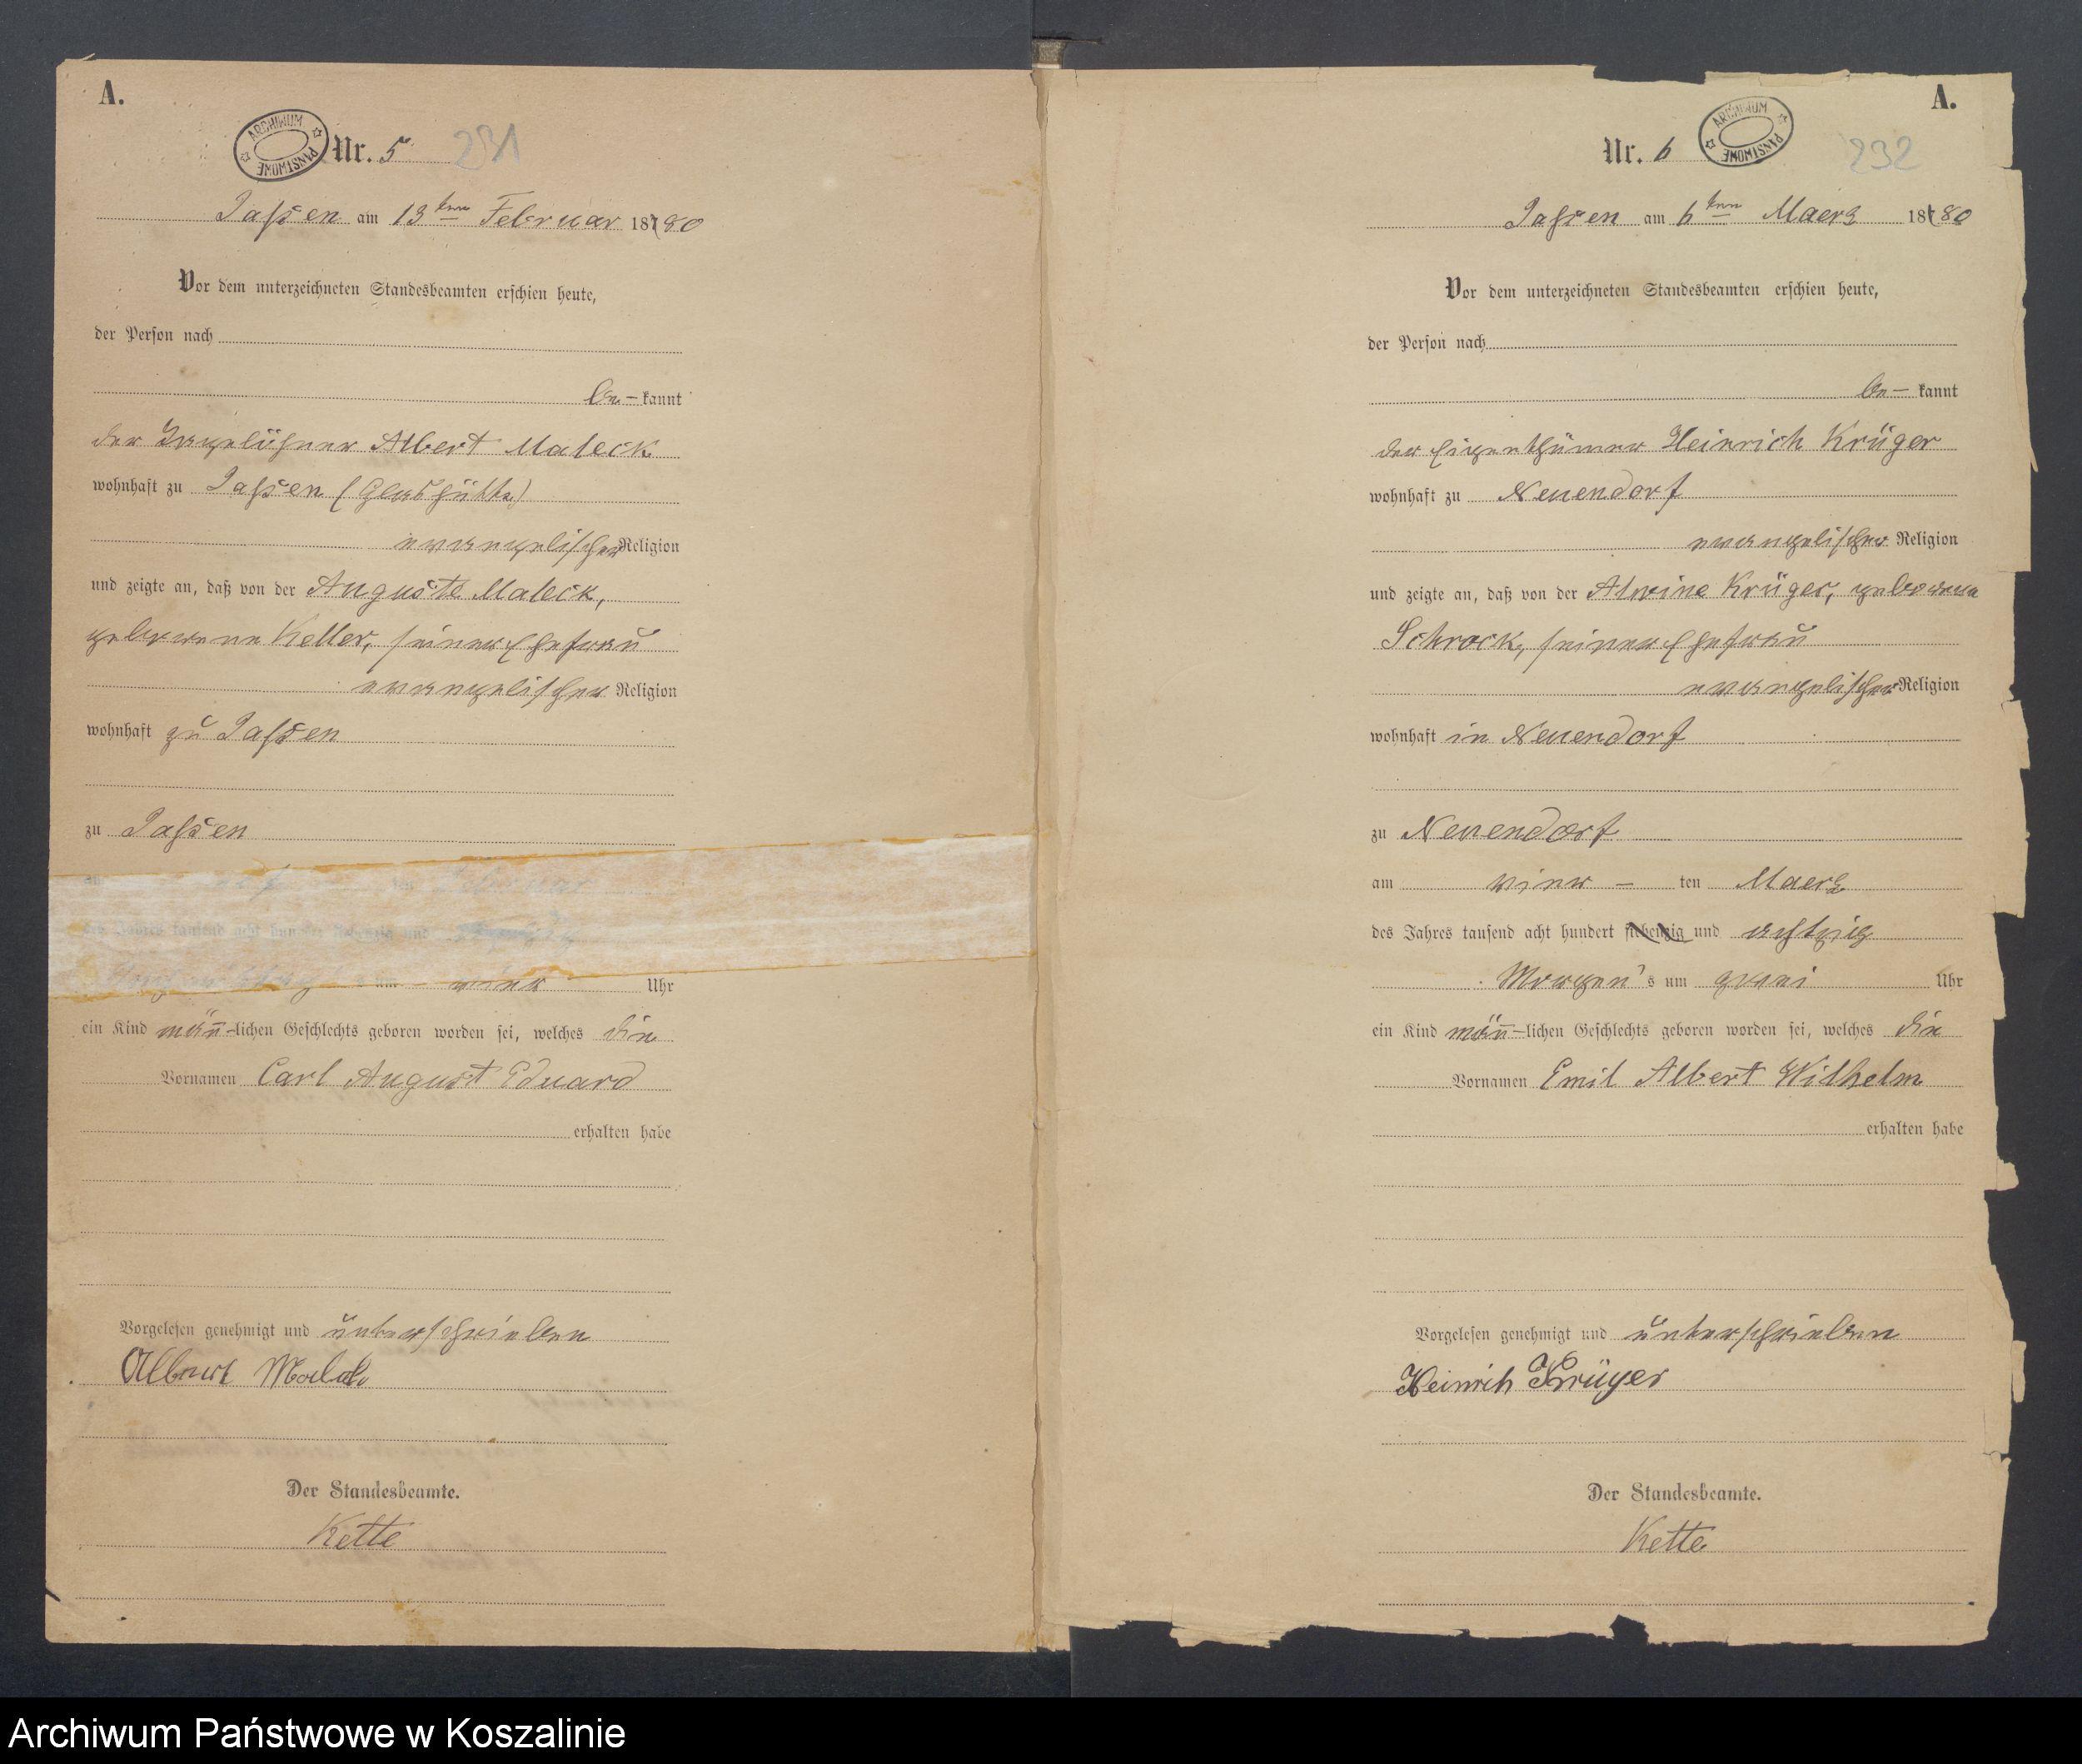 A.
ARCHIWUM PAŃSTWOWE
Nr. 5 231
Jassen am 13ten Februar 18780
Vor dem unterzeichneten Standesbeamten erschien heute,
der Person nach
be- kannt
der Tagelöhner Albert Maleck
wohnhaft zu Jassen (Glashütte)
evangelischer Religion
und zeigte an, daß von der Auguste Maleck,
geborene Keller, seiner Ehefrau
evangelischer Religion
wohnhaft zu Jassen
zu Jassen
am ten Februar
des Jahres tausend acht hundert siebenzig und
s um vier Uhr
ein Kind männ-lichen Geschlechts geboren worden sei, welches die
Vornamen Carl August Eduard
erhalten habe
Vorgelesen genehmigt und unterschrieben
Albert Maleck
Der Standesbeamte.
Kette
A.
Nr. 6 ARCHIWUM PAŃSTWOWE 232
Jassen am 6ten Maerz 18780
Vor dem unterzeichneten Standesbeamten erschien heute,
der Person nach
be- kannt
der Eigenthümer Heinrich Krüger
wohnhaft zu Neuendorf
evangelischer Religion
und zeigte an, daß von der Alwine Krüger, geborene
Schrock, seiner Ehefrau
evangelischer Religion
wohnhaft in Neuendorf
zu Neuendorf
am vier - ten Maerz
des Jahres tausend acht hundert siebenzig und achtzig
Morgen's um zwei Uhr
ein Kind männ-lichen Geschlechts geboren worden sei, welches die
Vornamen Emil Albert Wilhelm
erhalten habe
Vorgelesen genehmigt und unterschrieben
Heinrich Krüger
Der Standesbeamte.
Kette
Archiwum Państwowe w Koszalinie